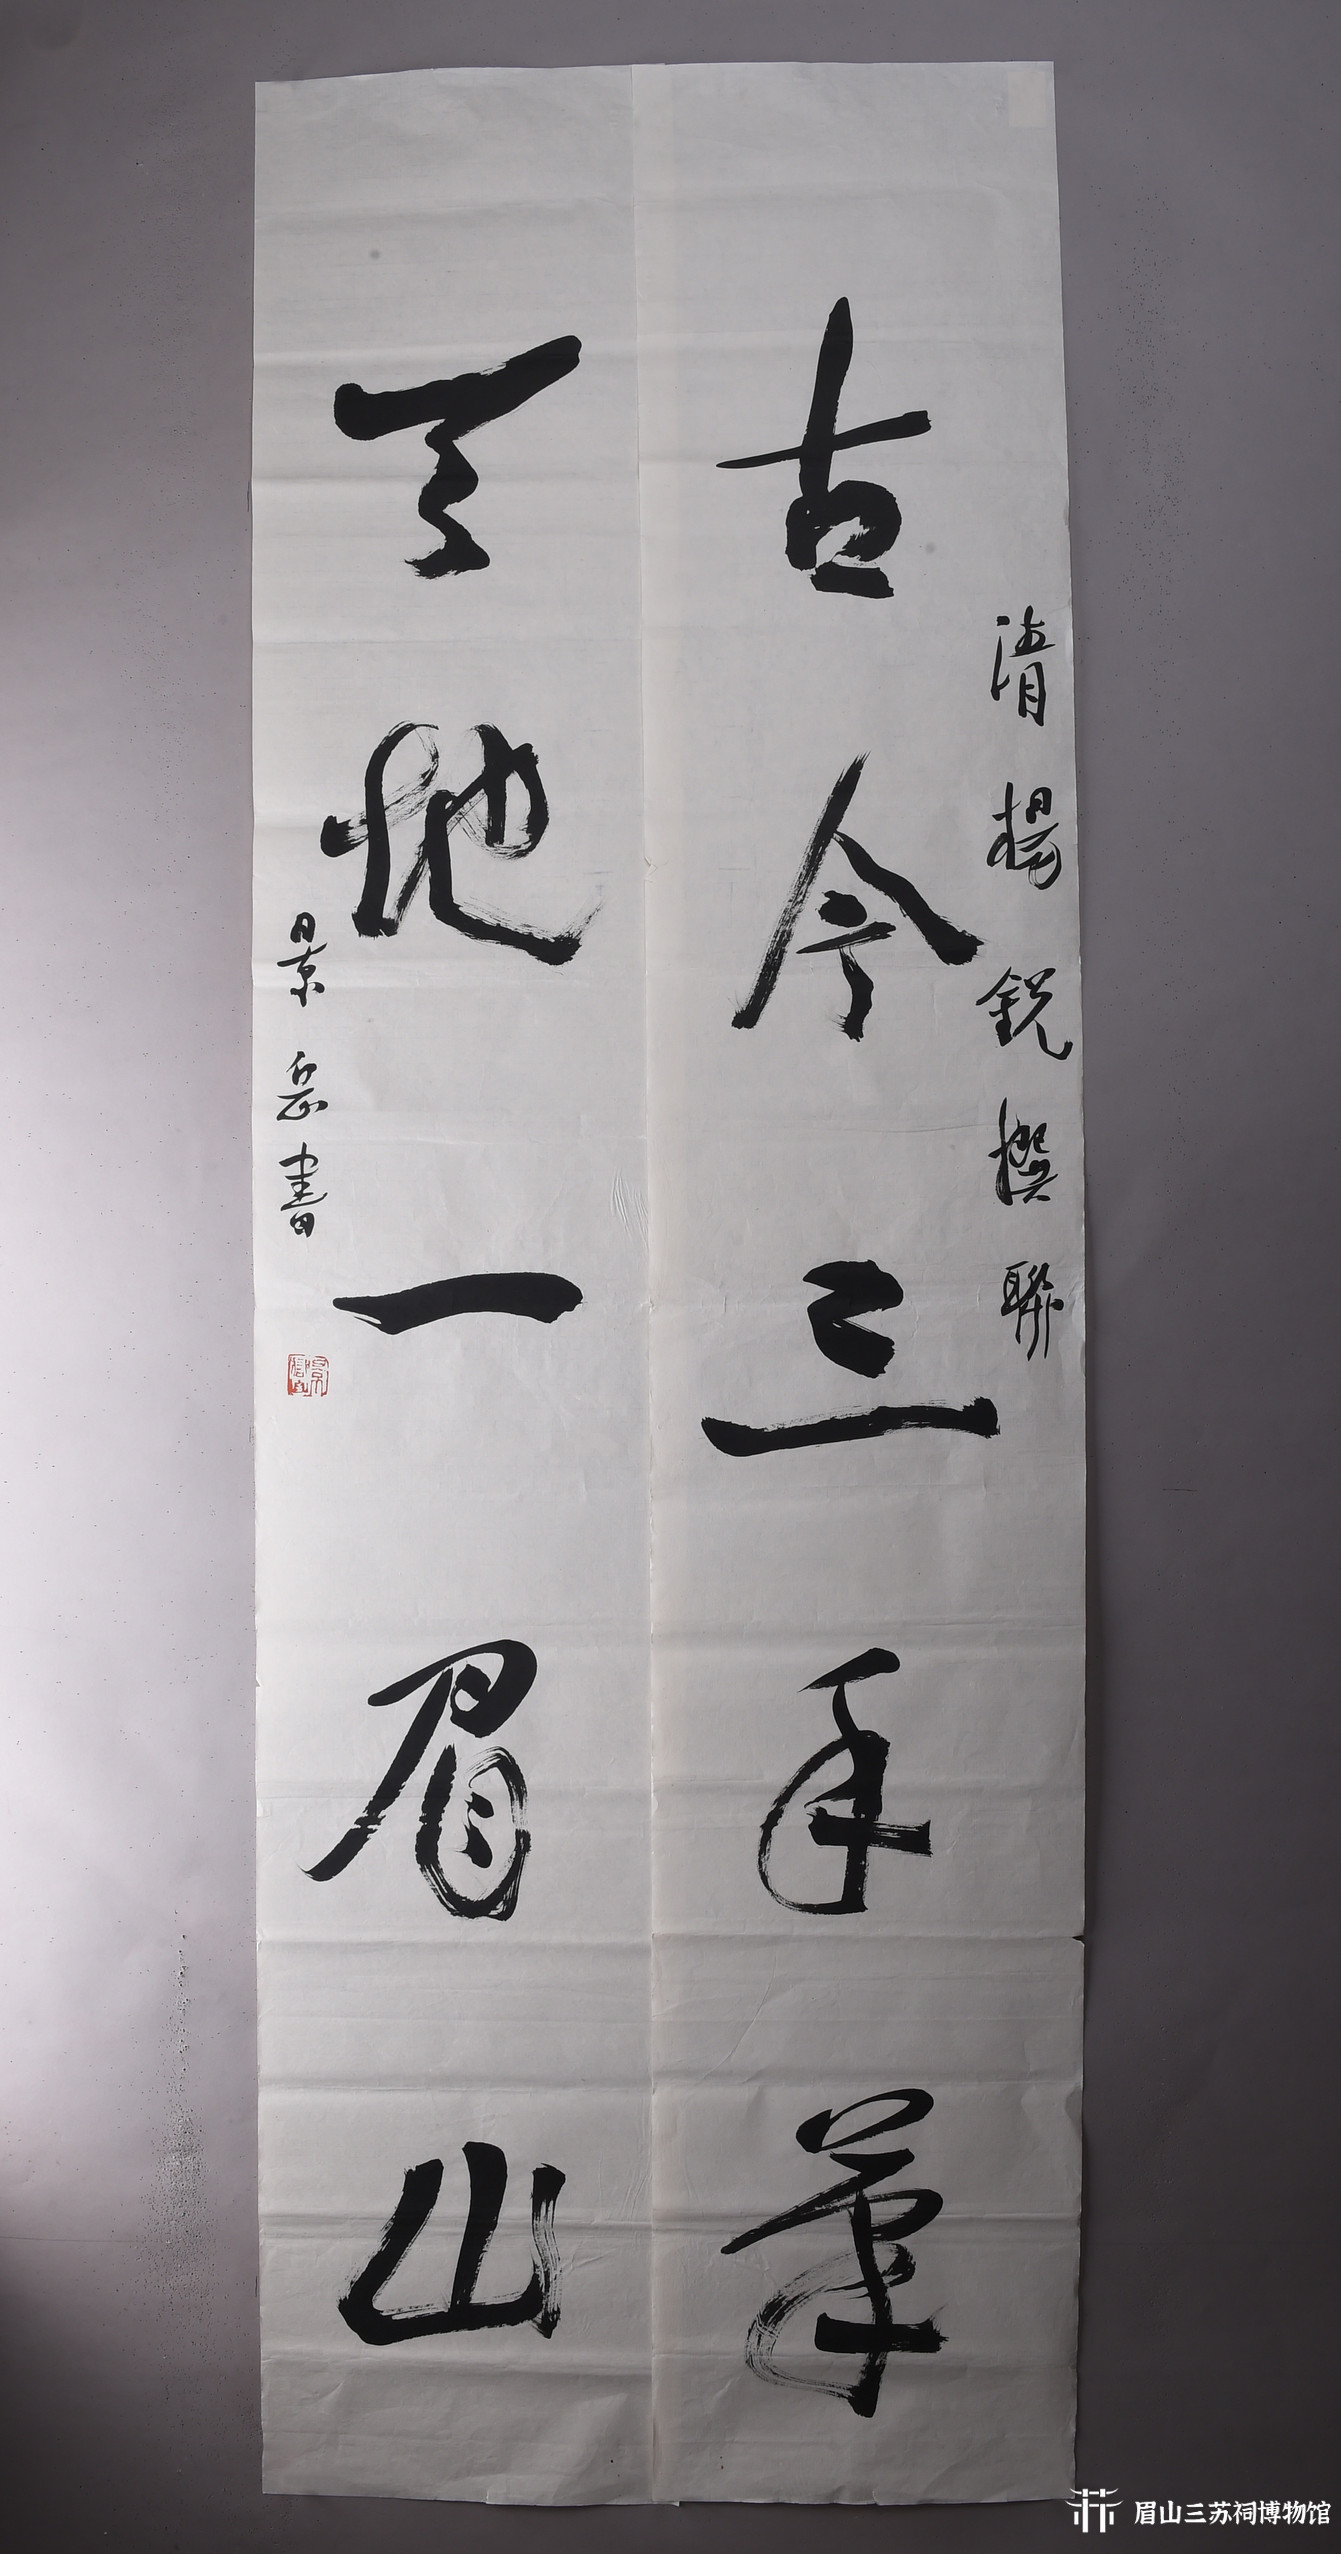 清楊銳撰聯
古今三手筆
天地一眉山
景岳書
眉山三苏祠博物馆